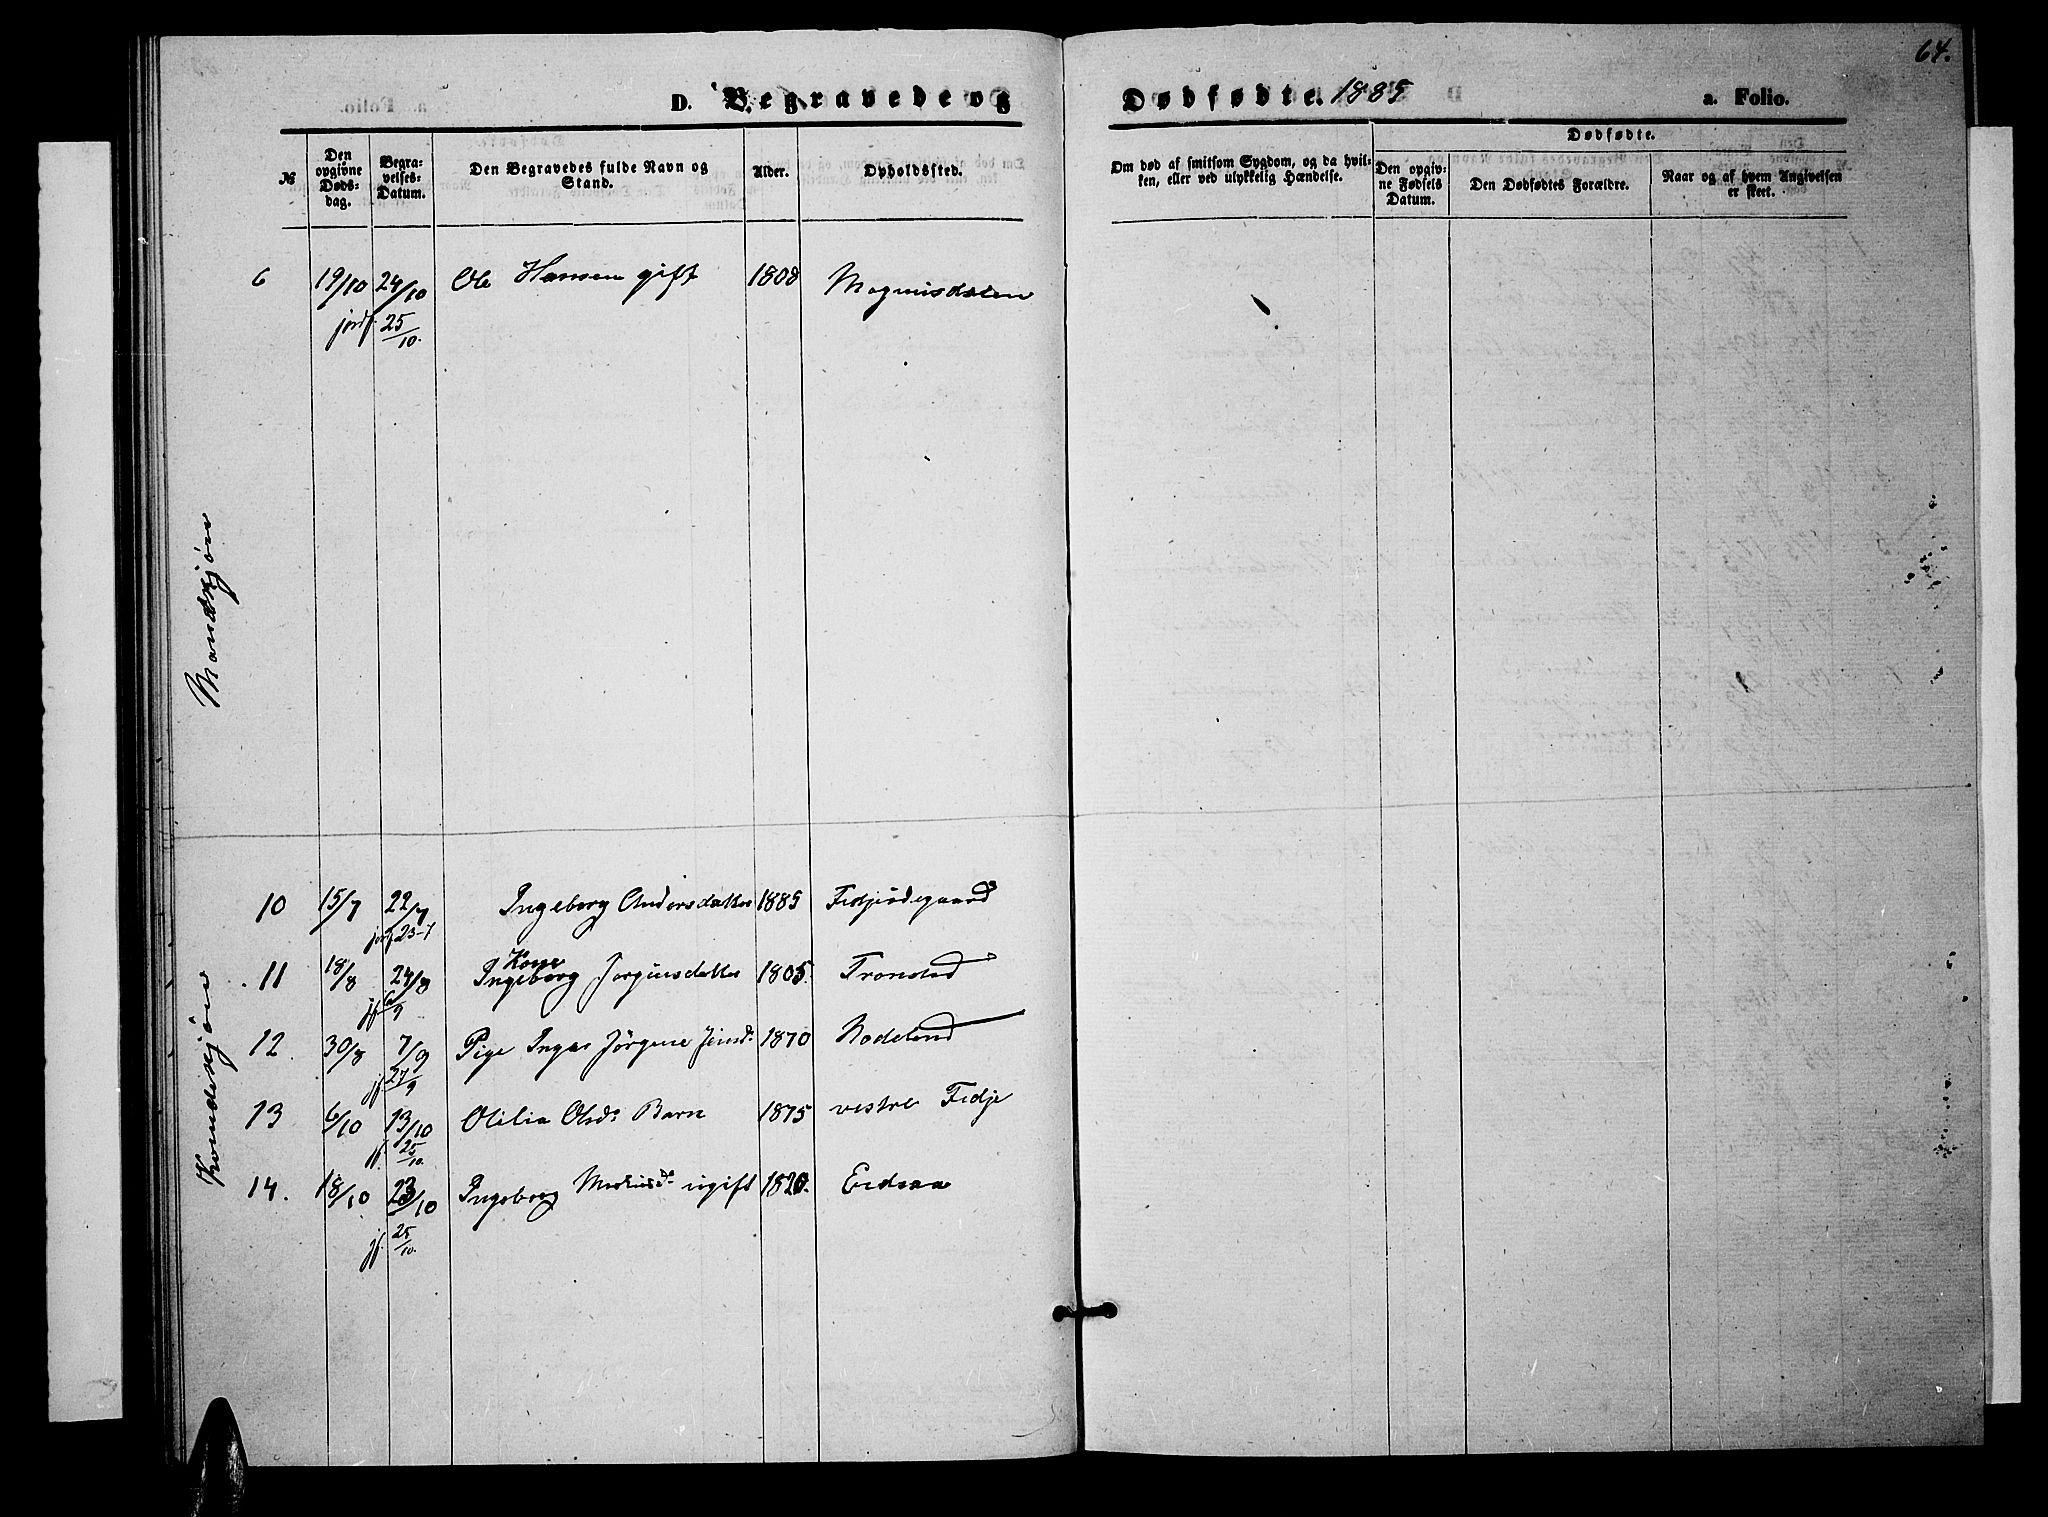 64.
D. Begravede og Dødfødte. 1885 a. Folio.
№ Den opgivne Døds-dag. Begra-velses-Datum. Den Begravedes fulde Navn og Stand. Alder. Opholdssted. Om død af smitsom Sygdom, og da hvil-ken, eller ved ulykkelig Hændelse. Dødfødte.
Den opgiv-ne Fødsels Datum. Den Dødfødtes Forældre. Naar og af hvem Angivelsen er skeet.
Mandkjøn
6 19/10 24/10 Ole Hansen gift 1808 Magnusdalen
jordf. 25/10.
Kvindekjøn
10 15/7 22/7 Ingeborg Andersdatter 1885 Fidjeødegaard
jordf 23-7
Kone
11 18/8 24/8 Ingeborg Jørginsdatter 1805. Tronstad
jf. 6/9
12 30/8 7/9 Pige Inga Jørgine Jensd. 1870 Hodeland
jf. 27/9
13 6/10 13/10 Olilia Olsd. Barn 1875 vestre Fidje
jf. 25/10.
14. 18/10 23/10 Ingeborg ugift 1820. Eidsaa
jf. 25/10.